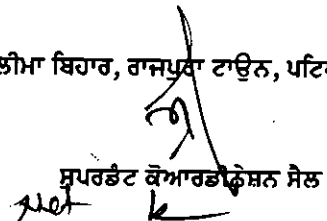 ਲੀਮਾ ਬਿਹਾਰ, ਰਾਜਪੁਰਾ ਟਾਊਨ,
ਸੁਪਰਡੰਟ ਕੋਆਰਡੀਨੇਸ਼ਨ ਸੈਲ